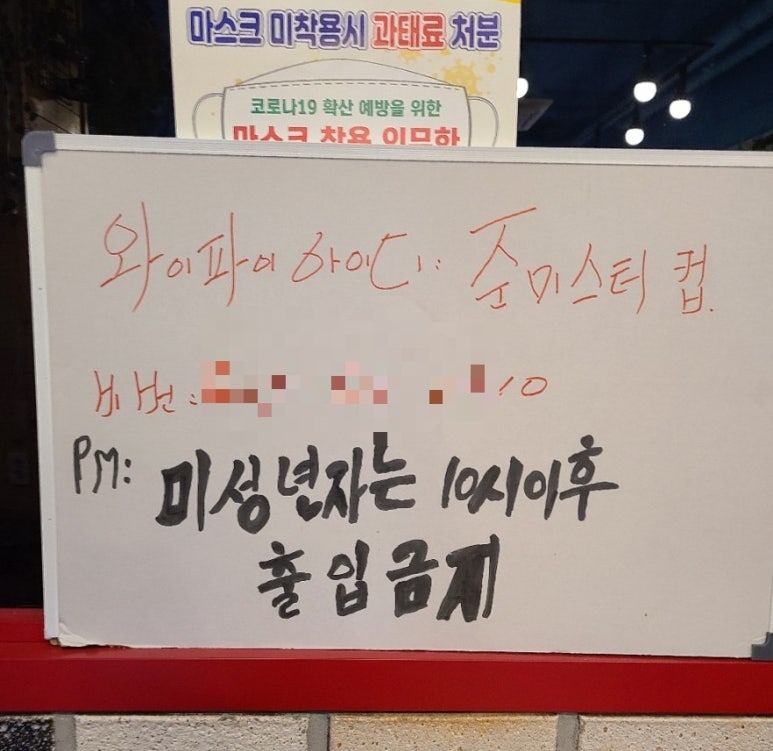 마스크 미착용시 과태료 처분
코로나19 확산 예방을 위한
마스크 착용 의무화
와이파이 아이디: 준미스터 컵.
비번: 10
PM: 미성년자는 10시이후
출입금지